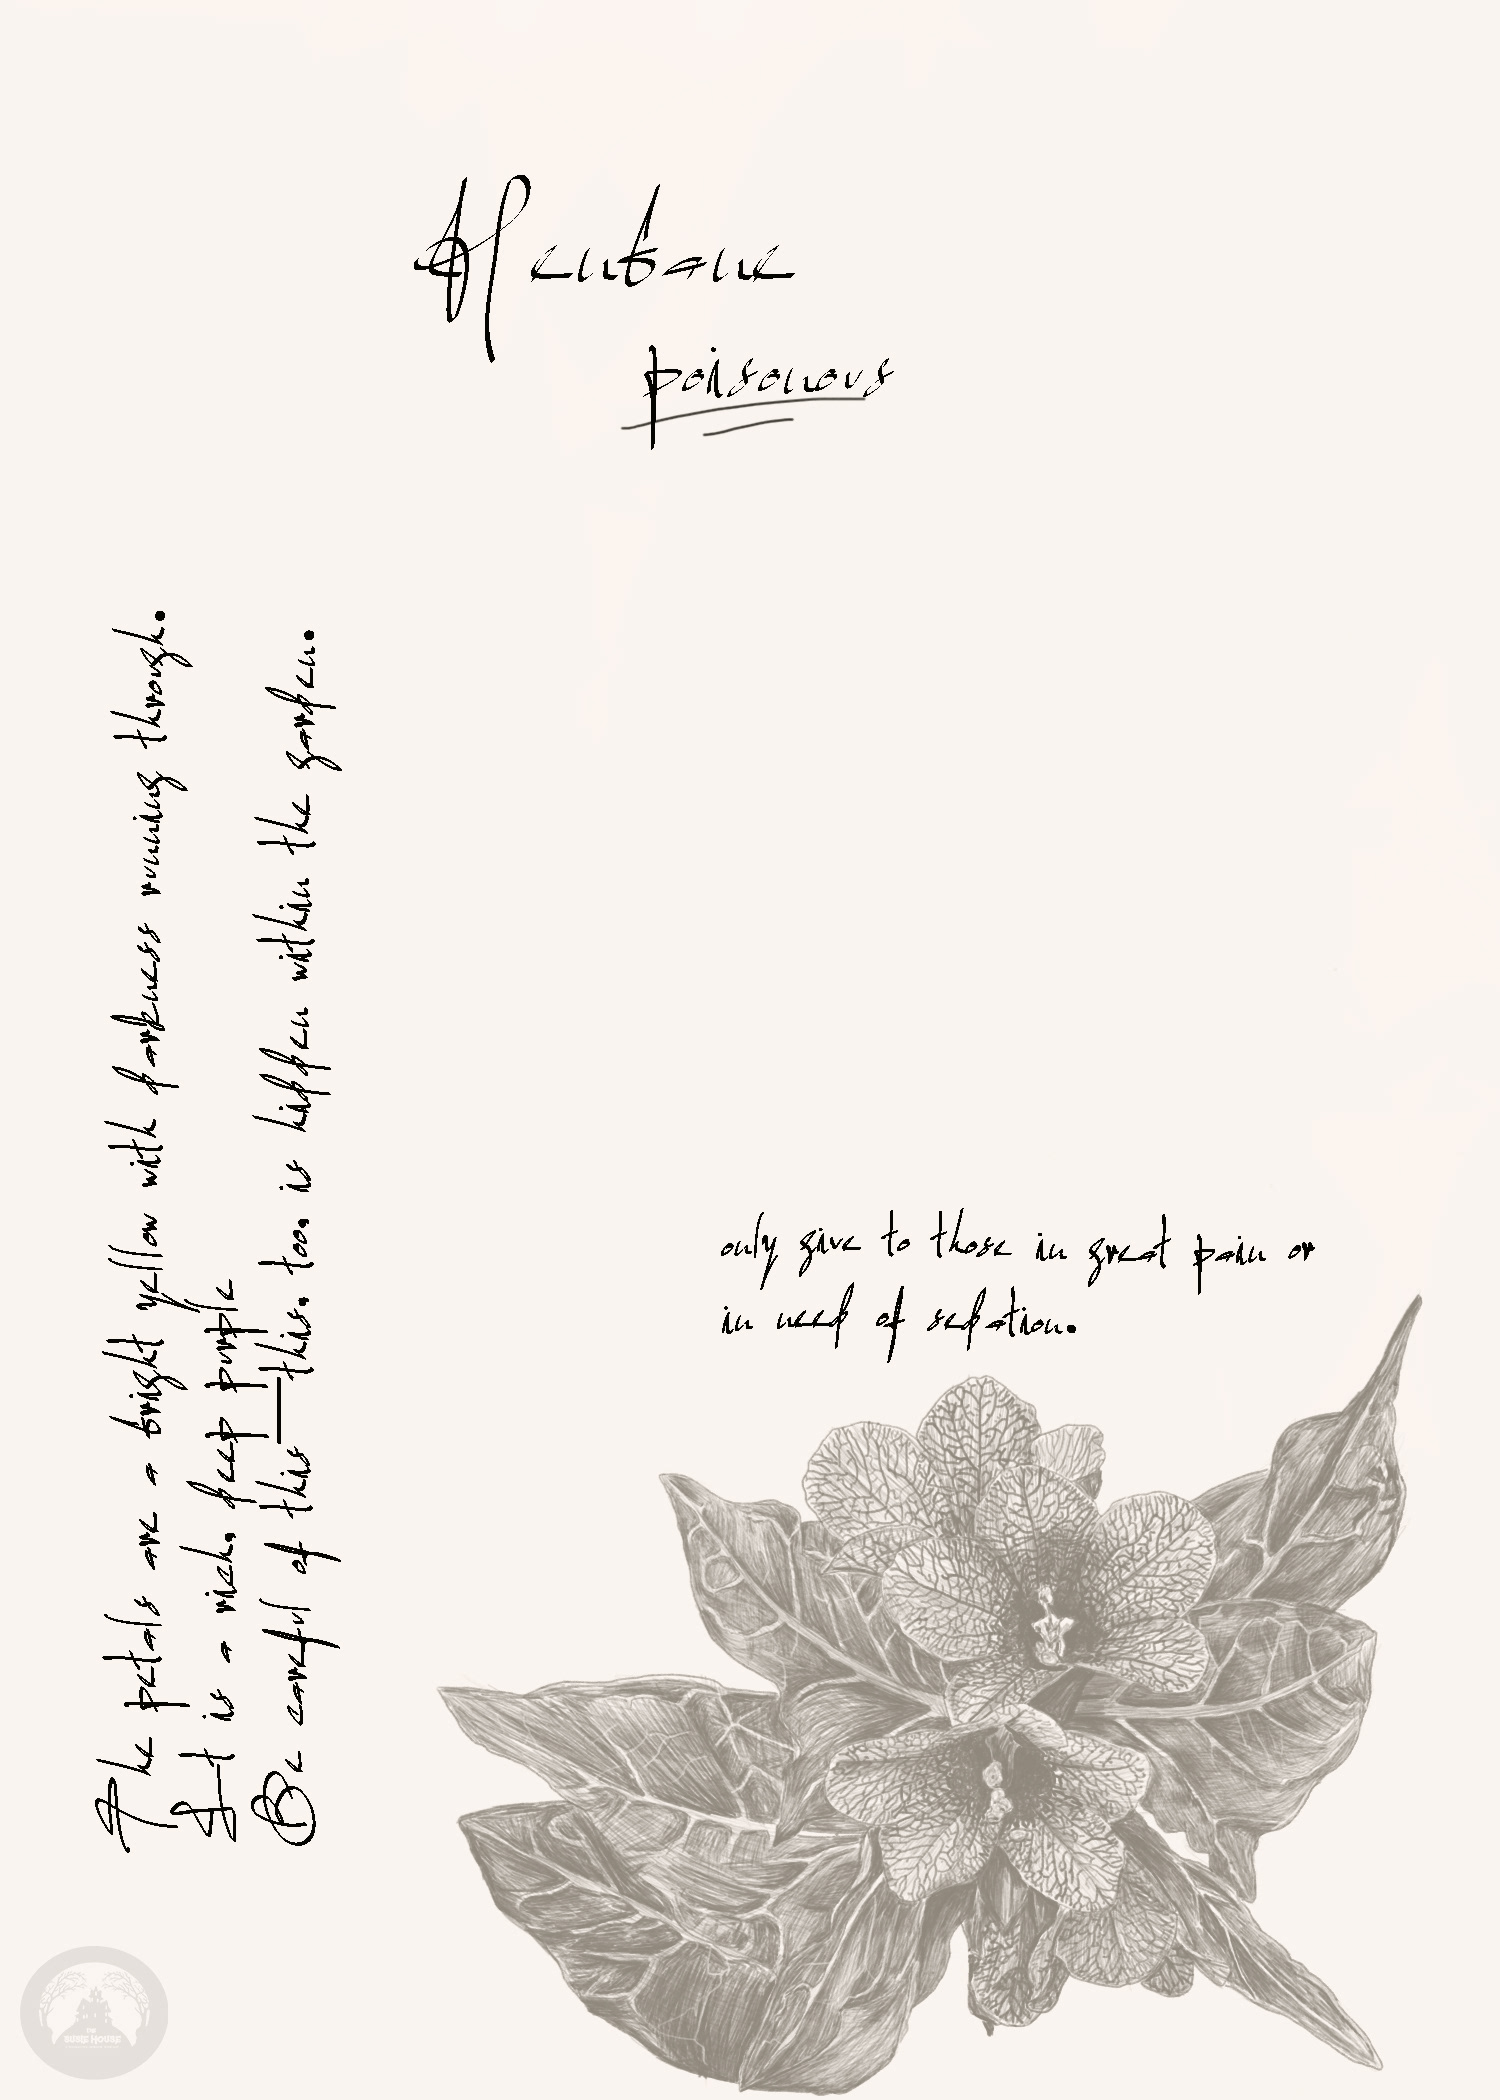 Henbane
poisonous
The petals are a bright yellow with darkness running through.
It is a rich, deep purple
Be careful of this—this, too, is hidden within the garden.
only give to those in great pain or
in need of sedation.
THE
SUBLE HOUSE